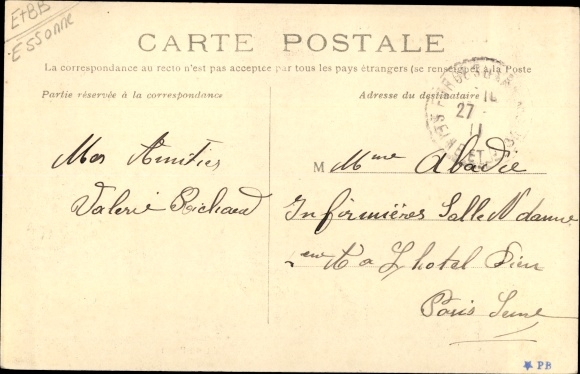 Et8B
Essonne
CARTE POSTALE
La correspondance au recto n'est pas acceptée par tous les pays étrangers (se renseigner à la Poste
Partie réservée à la correspondance
Adresse du destinataire
27
11
SEINE ET
Mes Amitiés
Valerie Richaud
M Mme Abadie
Infirmières Salle N dame
a L hotel Dieu
Paris Seine
PB